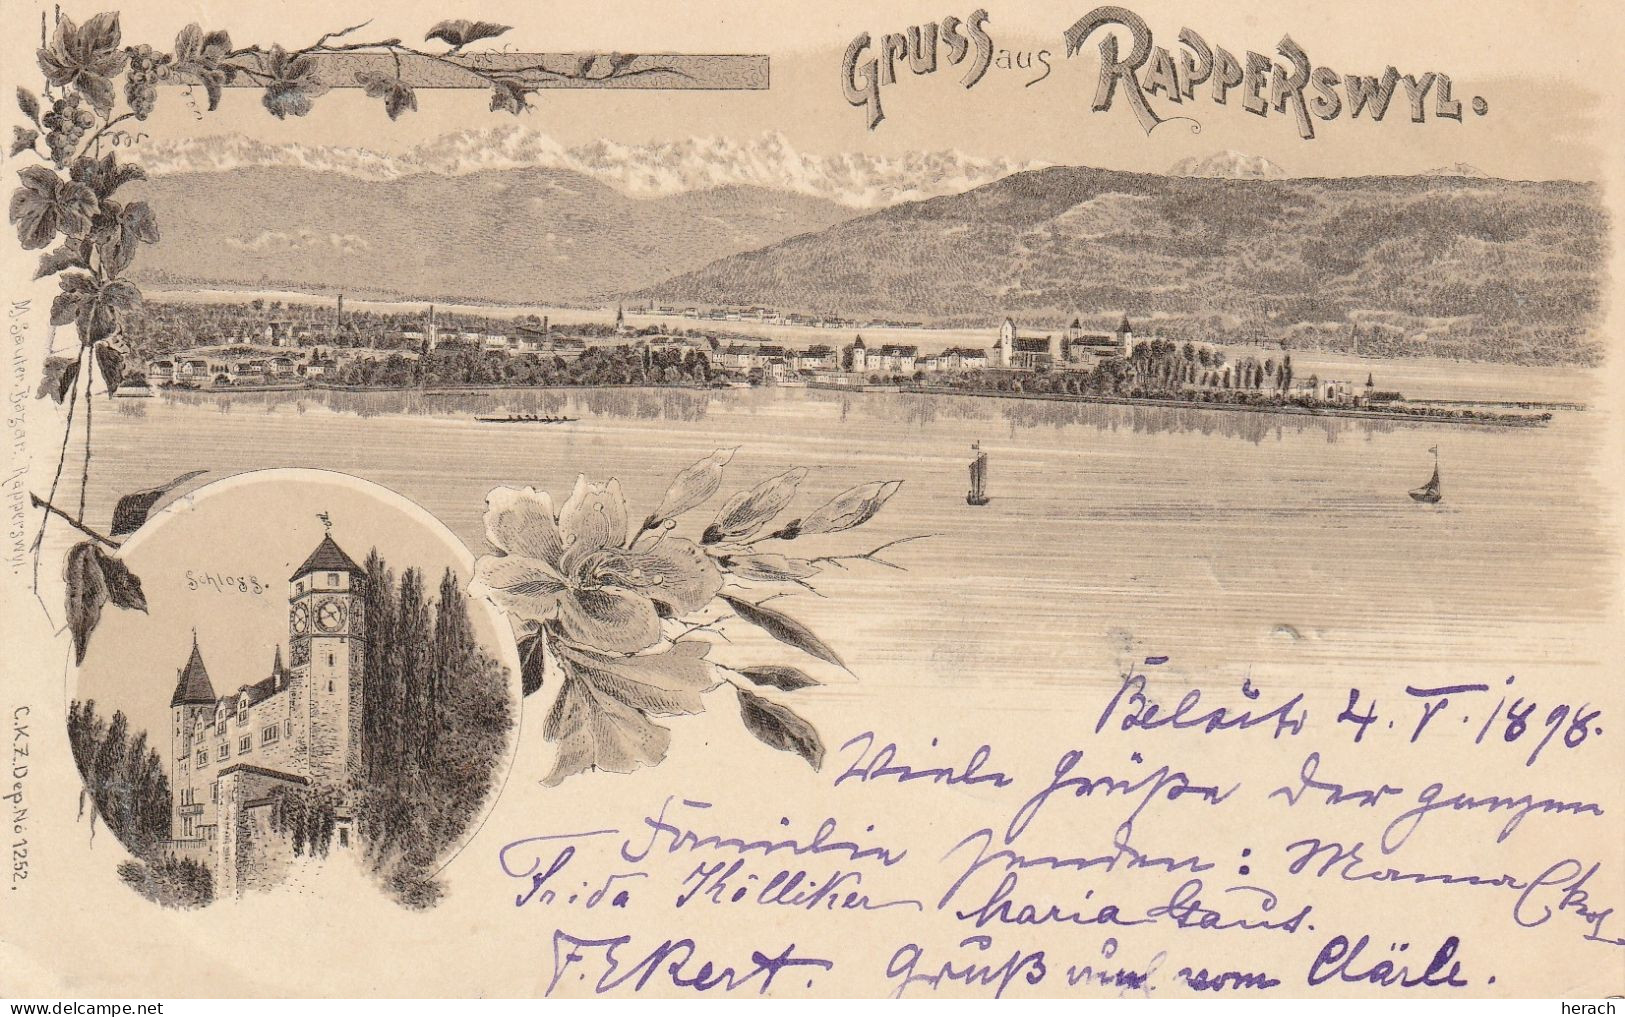 Gruss aus Rapperswyl.
Schloss.
C.K.Z. Dep. No 1252.
4. V. 1898.
Viele Grüße der ganzen
Familie senden: Mama
Frida Kölliker Maria Gaut.
F. Ekert. Gruß auch vom Clärle.
delcampe.net
herach